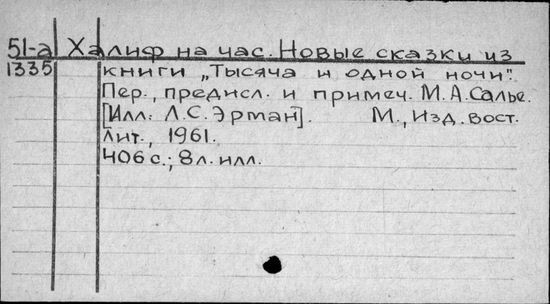 51-а Халиф на час. Новые сказки из
1335 книги „Тысяча и одной ночи".
Пер., предисл. и примеч. М.А.Салье.
[Илл: Л.С.Эрман]. М., Изд. вост.
лит., 1961.
406 с.; 8 л. илл.